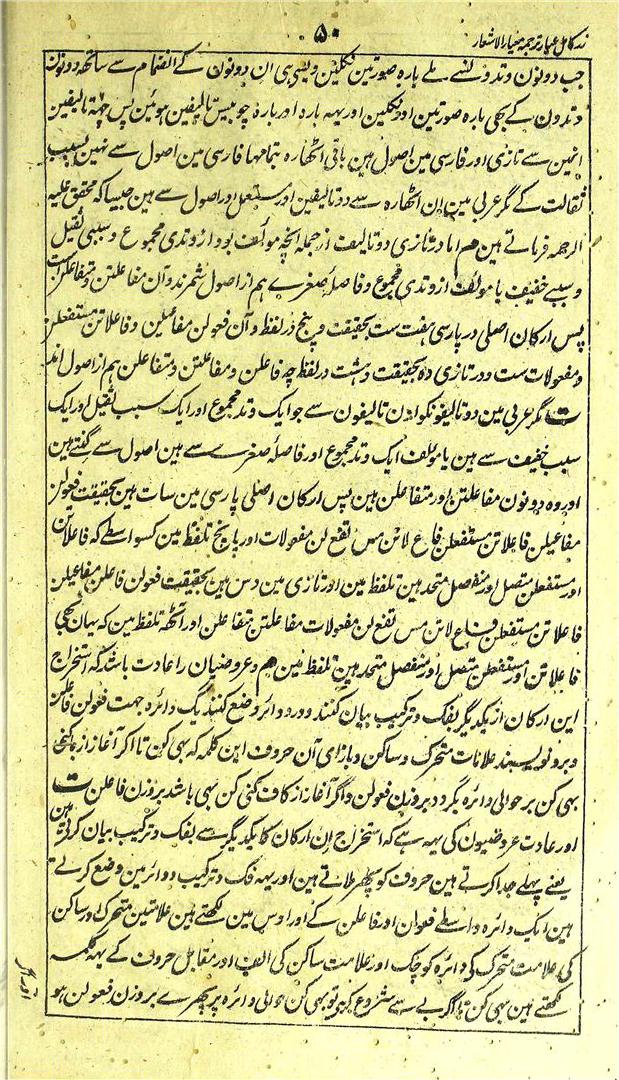 ۵۰
زر کامل عیار ترجمه معیار الاشعار
جب دونون وتدون سے ملے بارہ صورتین نکلین ویسی ہی ان دونون کے انضمام سے ساتھ دونون
وتدون کے بھی بارہ صورتین اور نکلین اور یہہ بارہ اور بارہ چوبیس تالیفین ہوئین پس چھہ تالیفین
انمین سے تازی اور فارسی مین اصول ہین باقی اٹھارہ بتمامہا فارسی مین اصول سے نہین بسبب
ثقالت کے مگر عربی مین ان اٹھارہ سے دو تالیفین اور مستعمل اور اصول سے ہین جیسا کہ محقق علیہ
الرحمہ فرماتے ہین م اما در تازی دو تالیف از جملہ انچہ مؤلف بود از وتدی مجموع و سببی ثقیل
و سببے خفیف یا مؤلف از وتدی مجموع و فاصلہ صغرے ہم از اصول شمرند و آن مفاعلتن و متفاعلن ست
پس ارکان اصلی در پارسی ہفت ست بحقیقت و پنج در لفظ و آن فعولن مفاعیلن و فاعلاتن مستفعلن
و مفعولات ست و در تازی دہ بحقیقت و ہشت در لفظ چہ فاعلن و مفاعلتن و متفاعلن ہم از اصول اند
ت مگر عربی مین دو تالیفونکو ان تالیفون سے جو ایک وتد مجموع اور ایک سبب ثقیل اور ایک
سبب خفیف سے ہین یا مؤلف ایک وتد مجموع اور فاصلہ صغرے سے ہین اصول سے گنتے ہین
اور وہ دونون مفاعلتن اور متفاعلن ہین پس ارکان اصلی پارسی مین سات ہین بحقیقت فعولن
مفاعیلن فاعلاتن مستفعلن فاع لاتن مس تفع لن مفعولات اور پانچ تلفظ مین کسواسطے کہ فاعلاتن
اور مستفعلن متصل اور منفصل متحد ہین تلفظ مین اور تازی مین دس ہین بحقیقت فعولن فاعلن مفاعیلن
فاعلاتن مستفعلن فاع لاتن مس تفع لن مفعولات مفاعلتن متفاعلن اور آٹھہ تلفظ مین کہ یہان بھی
فاعلاتن اور مستفعلن متصل اور منفصل متحد ہین تلفظ مین م و عروضیان را عادت باشد کہ استخراج
این ارکان از یکدیگر بفک و ترکیب بیان کنند و در دوائر وضع کنند یک دائرہ جہت فعولن فاعلن
و برو نویسند علامات متحرک و ساکن و بازای آن حروف این کلمہ کہ بہی کن تا اگر آغاز از بے کنی
بہی کن بر حوالی دائرہ بگردد بر وزن فعولن و اگر آغاز از کاف کنی کن بہی باشد بر وزن فاعلن ت
اور عادت عروضیون کی یہہ ہے کہ استخراج ان ارکان کا یکدیگر سے بفک و ترکیب بیان کرتے ہین
یعنے پہلے جدا کرتے ہین حروف کو پھر ملاتے ہین اور یہہ فک و ترکیب دوائر مین وضع کرتے
ہین ایک دائرہ واسطے فعولن اور فاعلن کے اور اوس مین لکھتے ہین علامتین متحرک و ساکن
کی علامت متحرک کی دائرہ کوچک اور علامت ساکن کی الف اور مقابل حرفون کے یہہ کلمہ
لکھتے ہین بہی کن تا اگر بے سے شروع کرو تو بہی کن حوالی دائرہ پر پھرے بر وزن فعولن ہو